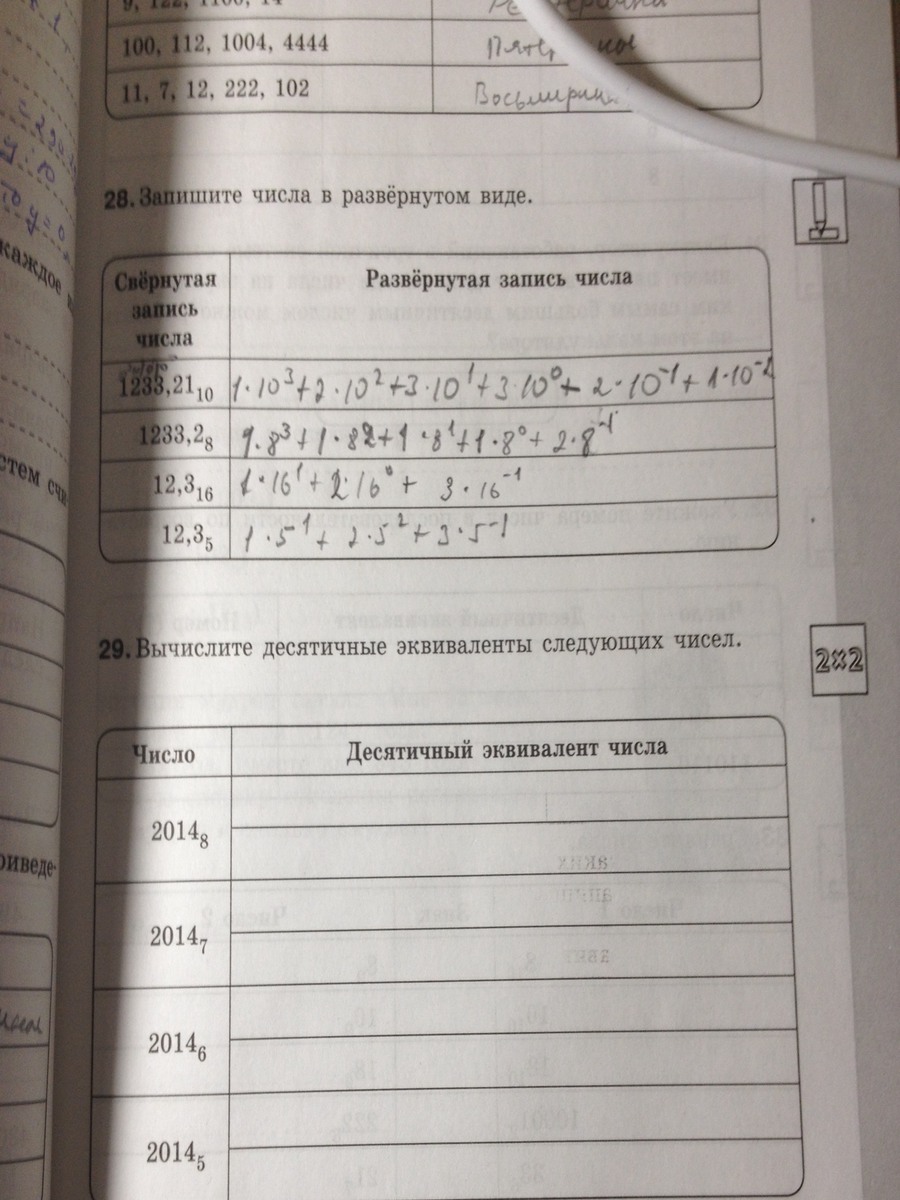 9, 122, 1100, 14
100, 112, 1004, 4444
11, 7, 12, 222, 102
28. Запишите числа в развёрнутом виде.
Свёрнутая запись числа Развёрнутая запись числа
1233,21₁₀ 1·10³+2·10²+3·10¹+3·10⁰+2·10⁻¹+1·10⁻²
1233,2₈ 1·8³+1·82+1·8¹+1·8⁰+2·8⁻¹
12,3₁₆ 1·16¹+2·16⁰+3·16⁻¹
12,3₅ 1·5¹+2·5²+3·5⁻¹
29. Вычислите десятичные эквиваленты следующих чисел.
2×2
Число Десятичный эквивалент числа
2014₈
2014₇
2014₆
2014₅